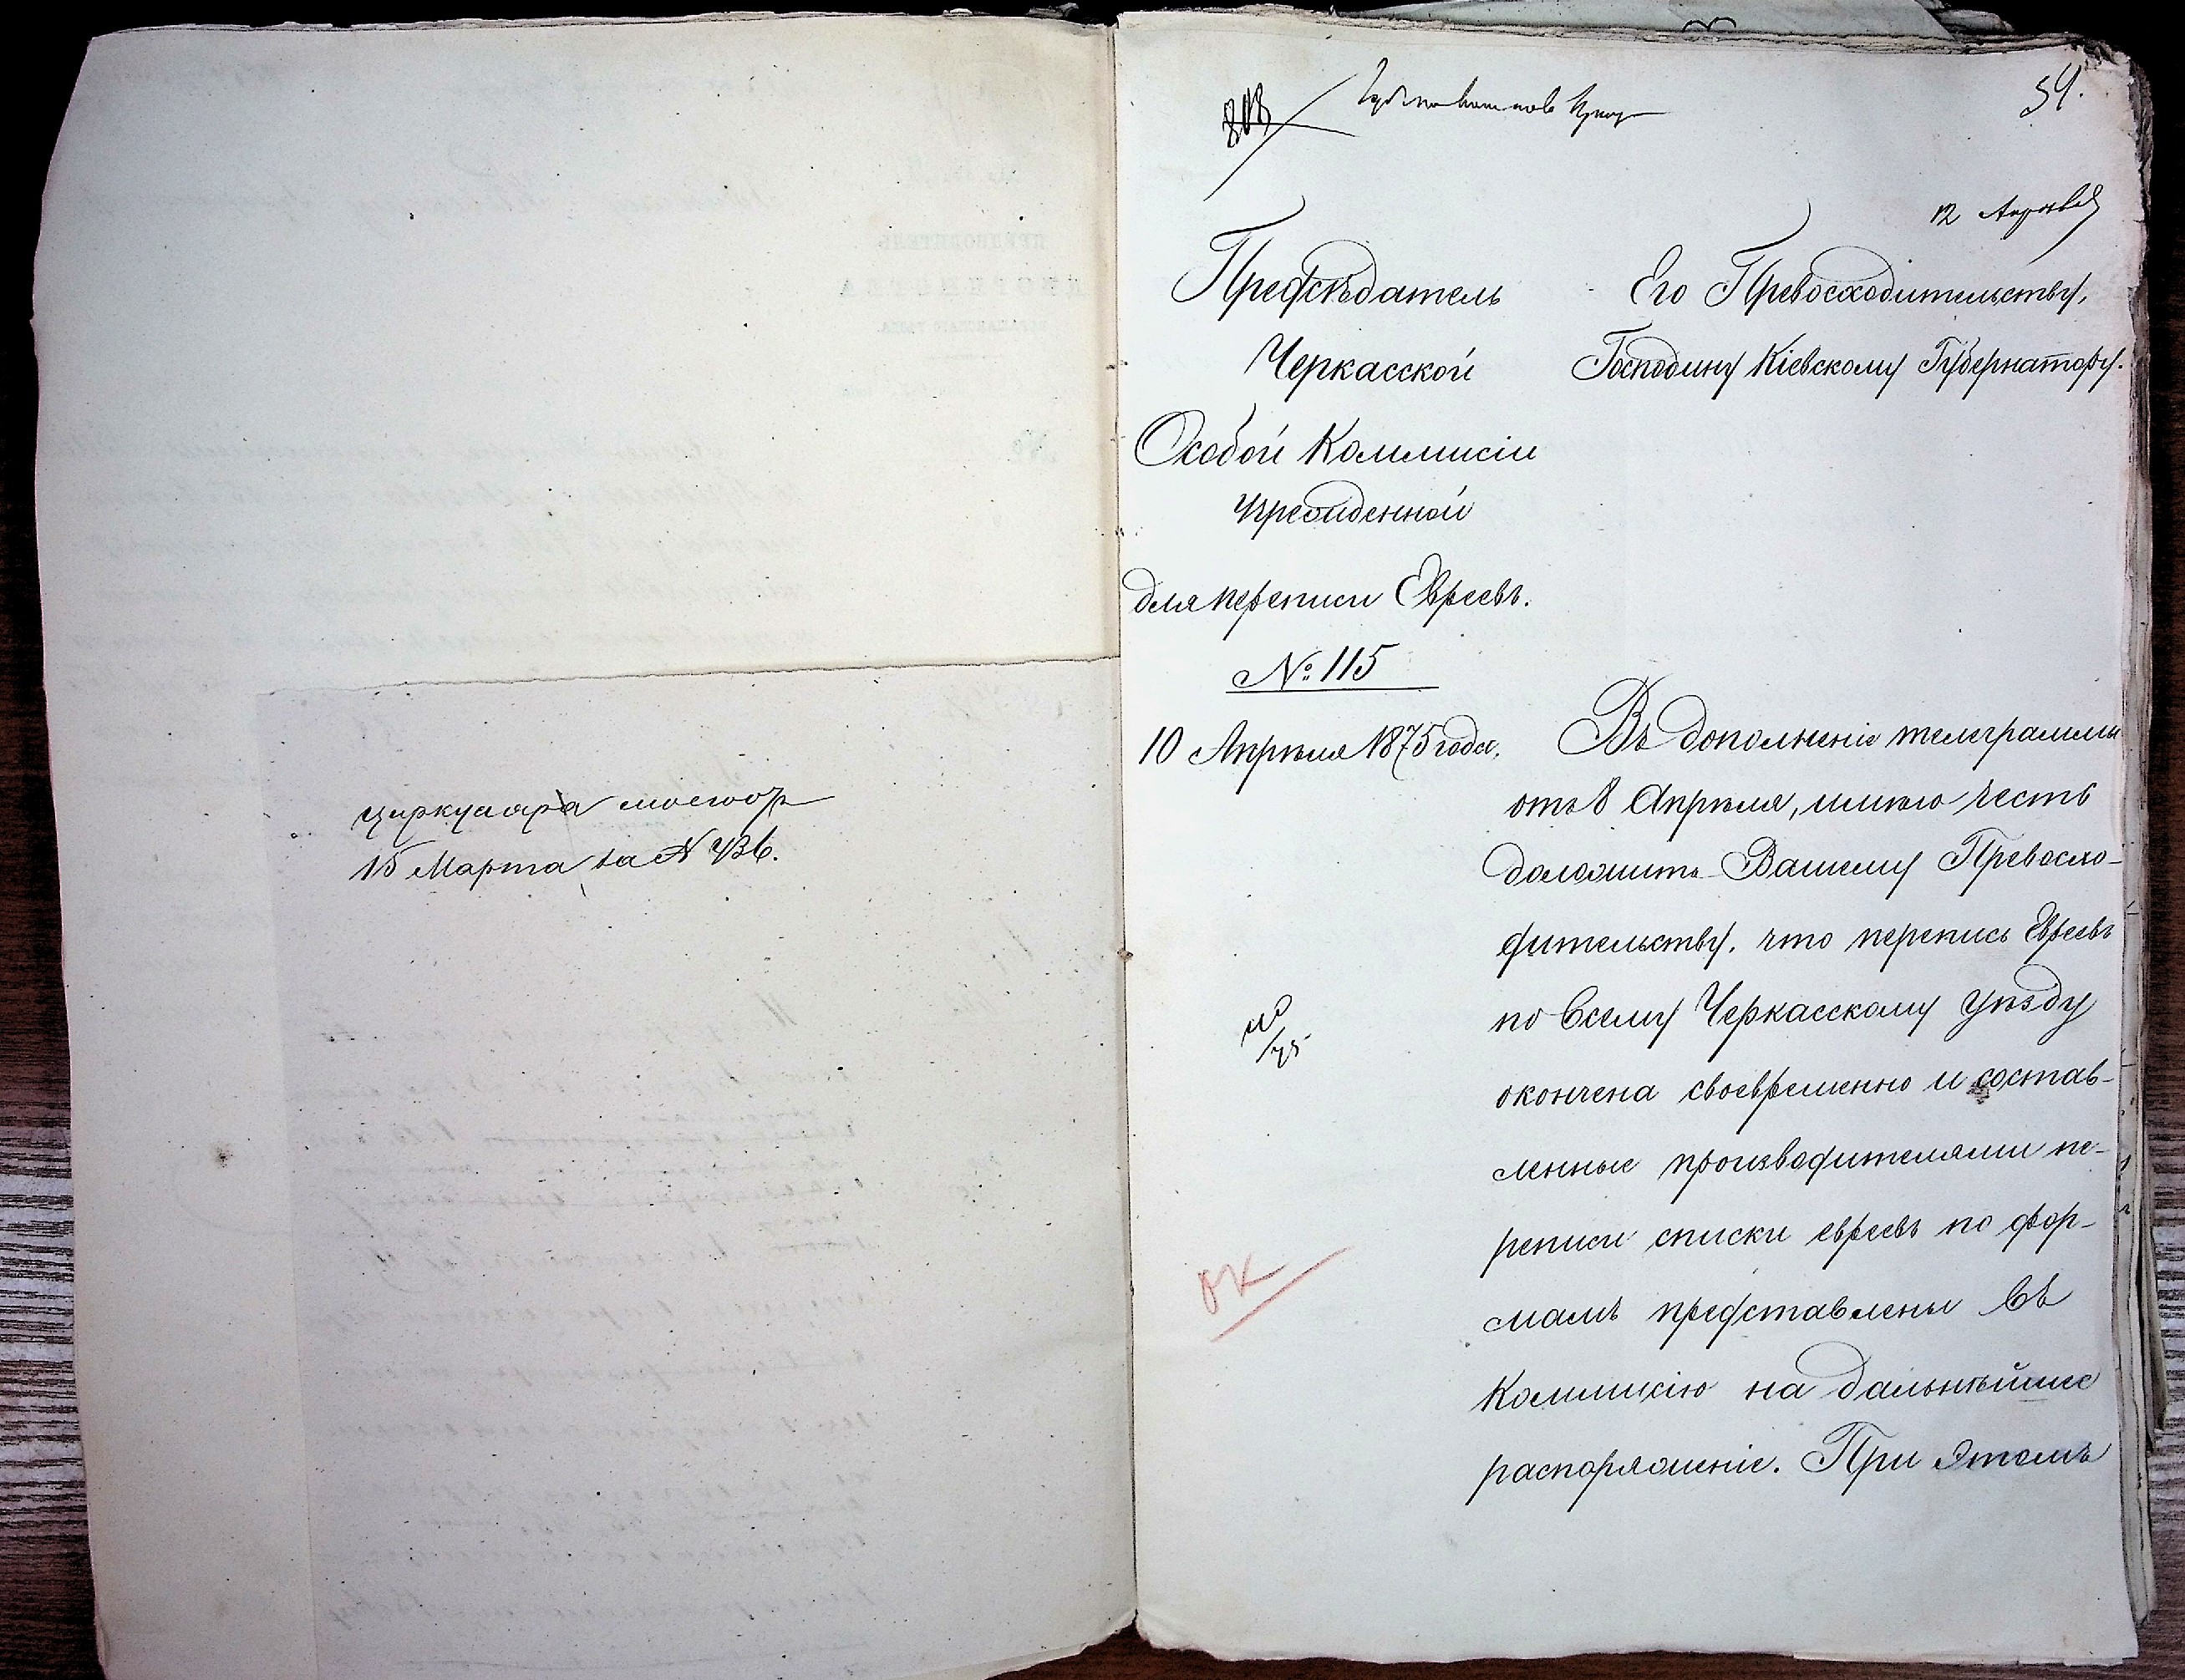 циркуляра моего от
15 Марта за № 436.
54.
12 Апрѣля
Предсѣдатель
Черкасской
Особой Коммисіи
учрежденной
для переписи Евреевъ.
№ 115
10 Апрѣля 1875 года.
Его Превосходительству,
Господину Кіевскому Губернатору.
Въ дополненіе телеграммы
отъ 8 Апрѣля, имѣю честь
доложить Вашему Превосхо-
дительству, что перепись Евреевъ
по всему Черкасскому уѣзду
окончена своевременно и состав-
ленные производителями пе-
реписи списки евреевъ по фор-
мамъ представлены въ
Коммисію на дальнѣйшее
распоряженіе. При этомъ